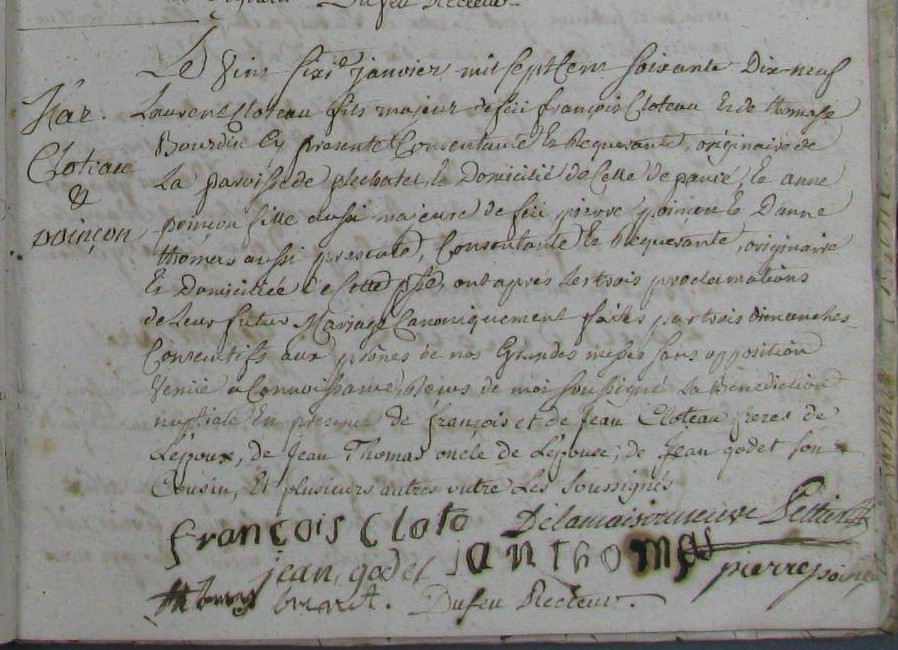 Dufeu Recteur.
Le Vins sixie janvier mil sept cens soixante Dix-neuf
Mar.
Laurent Cloteau fils majeur de féu françois Cloteau Et de thomasse
Clotiau
Bourdin Cy presente Consentante Et Requerante, originaire de
&
La paroisse de plechatel, et Domicilié de Celle de pancé, Et anne
poinçon
poinçon fille aussi majeure de féu pierre poinson Et D'anne
thomas aussi presente, Consentante Et Requerante, originaire
Et Domiciliée de Cette psse, ont aprés Les trois proclamations
de Leur futur Mariage Canoniquement faites par trois dimanches
Consecutifs aux prônes de nos Grandes messes sans opposition
Venüe a Connoissance, Reçus de moi soussigné La Bénédiction
nuptiale En presence de françois et de Jean Cloteau freres de
L'époux, de Jean Thomas oncle de L'épouse, de Jean godet son
Cousin, Et plusieurs autres outre Les soussignés
françois Cloto Delamaisonneuve
jean godet jan thomas pierre poinçon
Dufeu Recteur.